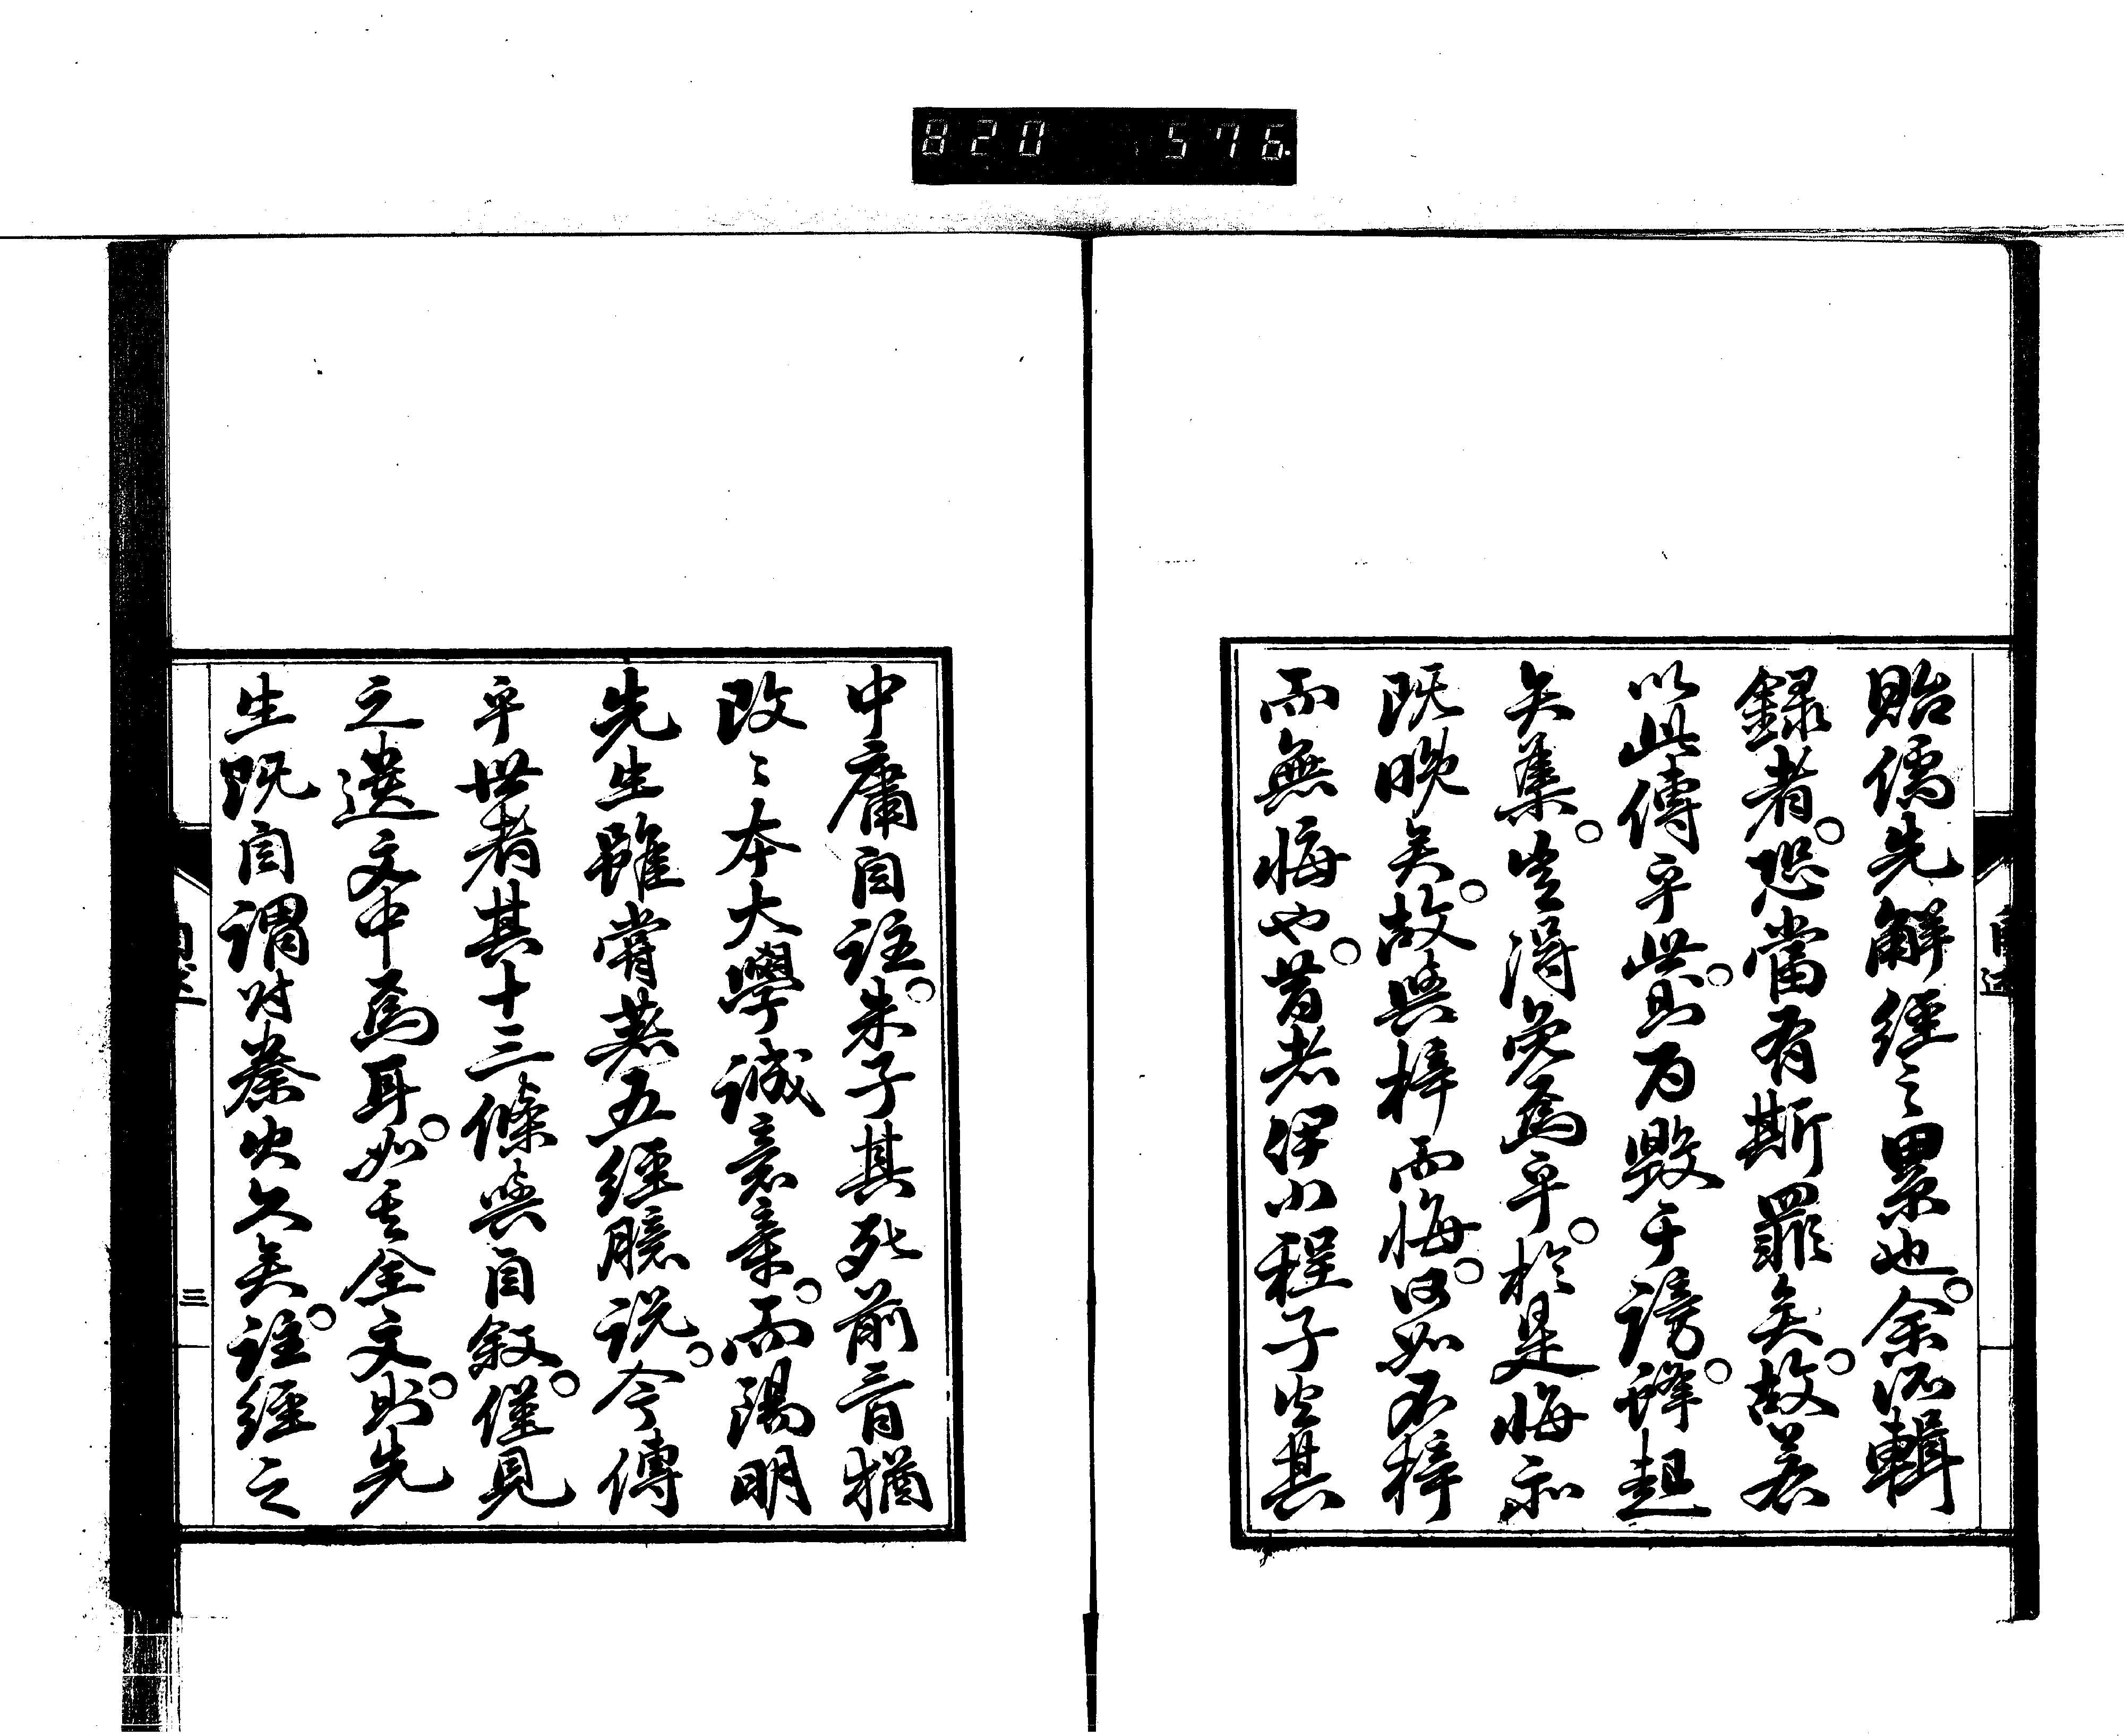 820 576.
貽儒先解經之累也。余所輯
錄者。恐當有斯罪矣。故若
以此傳乎世。則為毀于謗鋒起
矣集。豈得免焉乎。於是悔亦
既晚矣。故與梓而悔。何如不梓
而無悔也。昔者伊川程子焚其
中庸自註。朱子其死前三月猶
改々本大學誠意章。而陽明
先生雖嘗著五經臆說。今傳
乎世者其十三條與自敘。僅見
之遺文中焉耳。如其全文。則先
生既自謂付秦火久矣。註經之
三